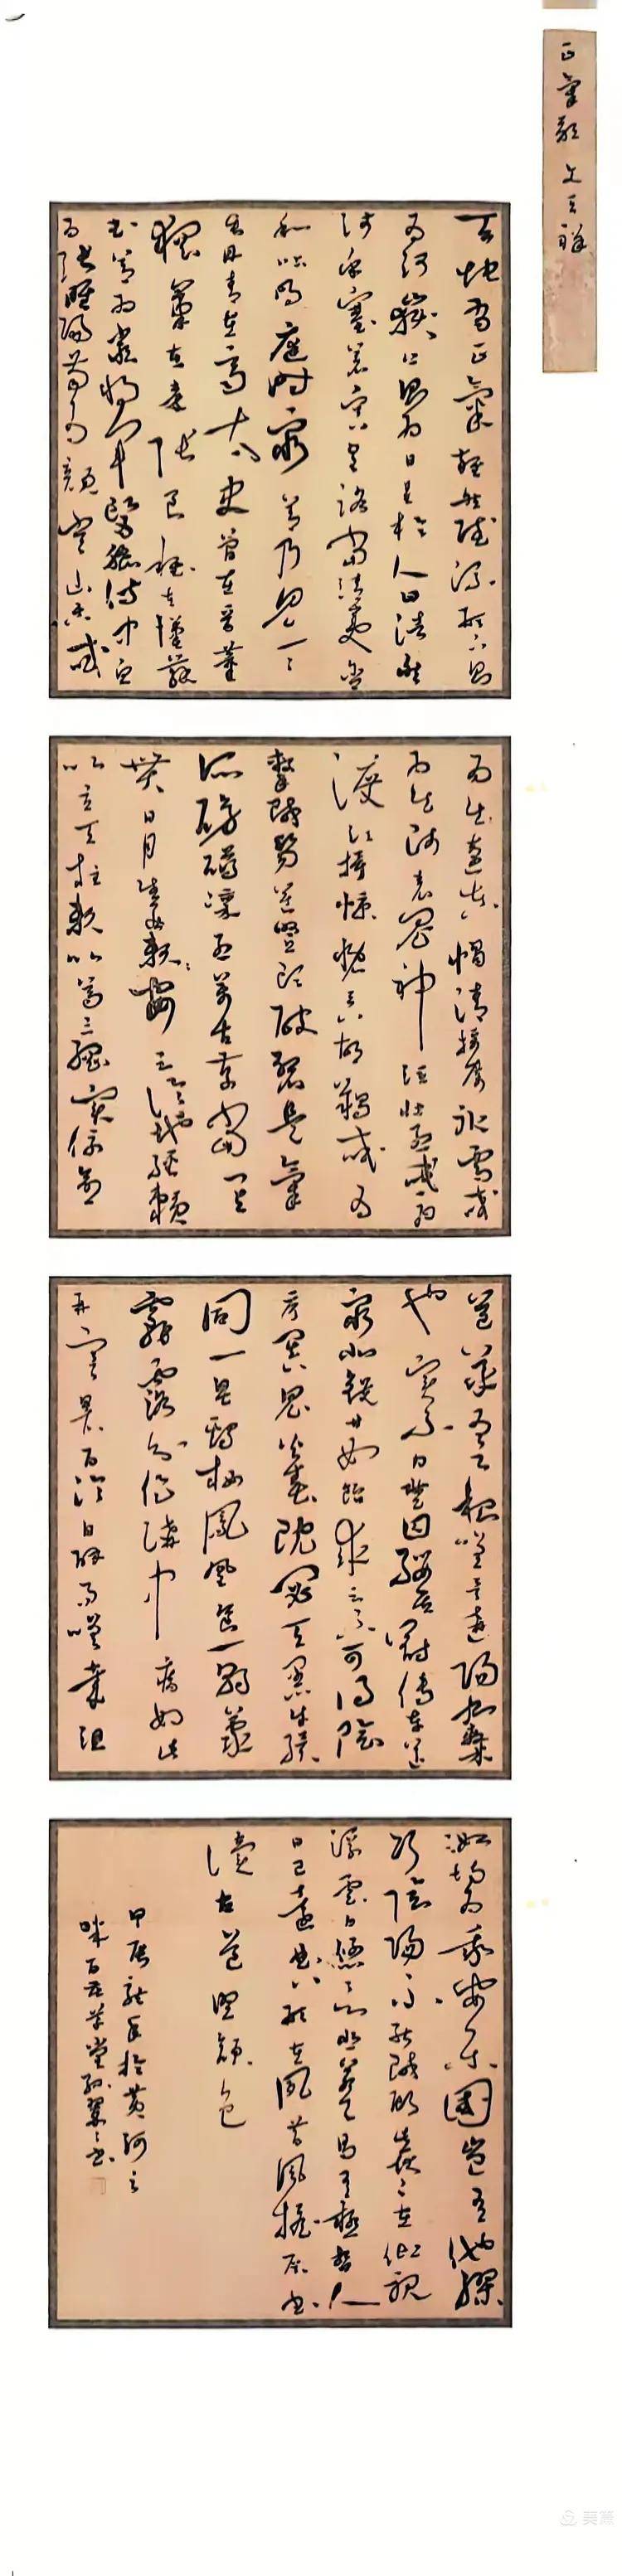 正氣歌 文天祥
天地有正氣雜然賦流形下則
為河嶽上則為日星於人曰浩然
沛乎塞蒼冥皇路當清夷含
和吐明庭時窮節乃見一一
垂丹青在齊太史簡在晉董
狐筆在秦張良椎在漢蘇
武節為嚴將軍頭為嵇侍中血
為張睢陽齒為顏常山舌或
為遼東帽清操厲冰雪或
為出師表鬼神泣壯烈或為
渡江楫慷慨吞胡羯或為
擊賊笏逆豎頭破裂是氣
所磅礴凜烈萬古存當其
貫日月生死安論地維賴
以立天柱賴以尊三綱實係命
道義為之根嗟予遘陽九隸
也實不力楚囚纓其冠傳車送
窮北鑊甘如飴求之不可得陰
房闃鬼火春院閟天黑牛驥
同一皂雞棲鳳凰食一朝蒙
霧露分作溝中瘠如此
再寒暑百沴自辟易嗟哉沮
洳場為我安樂國豈有他繆
巧陰陽不能賊顧此耿耿在仰視
浮雲白悠悠我心悲蒼天曷有極哲人
日已遠典刑在夙昔風檐展書
讀古道照顏色
甲辰龍年於黃河之
畔百草堂書
美篇